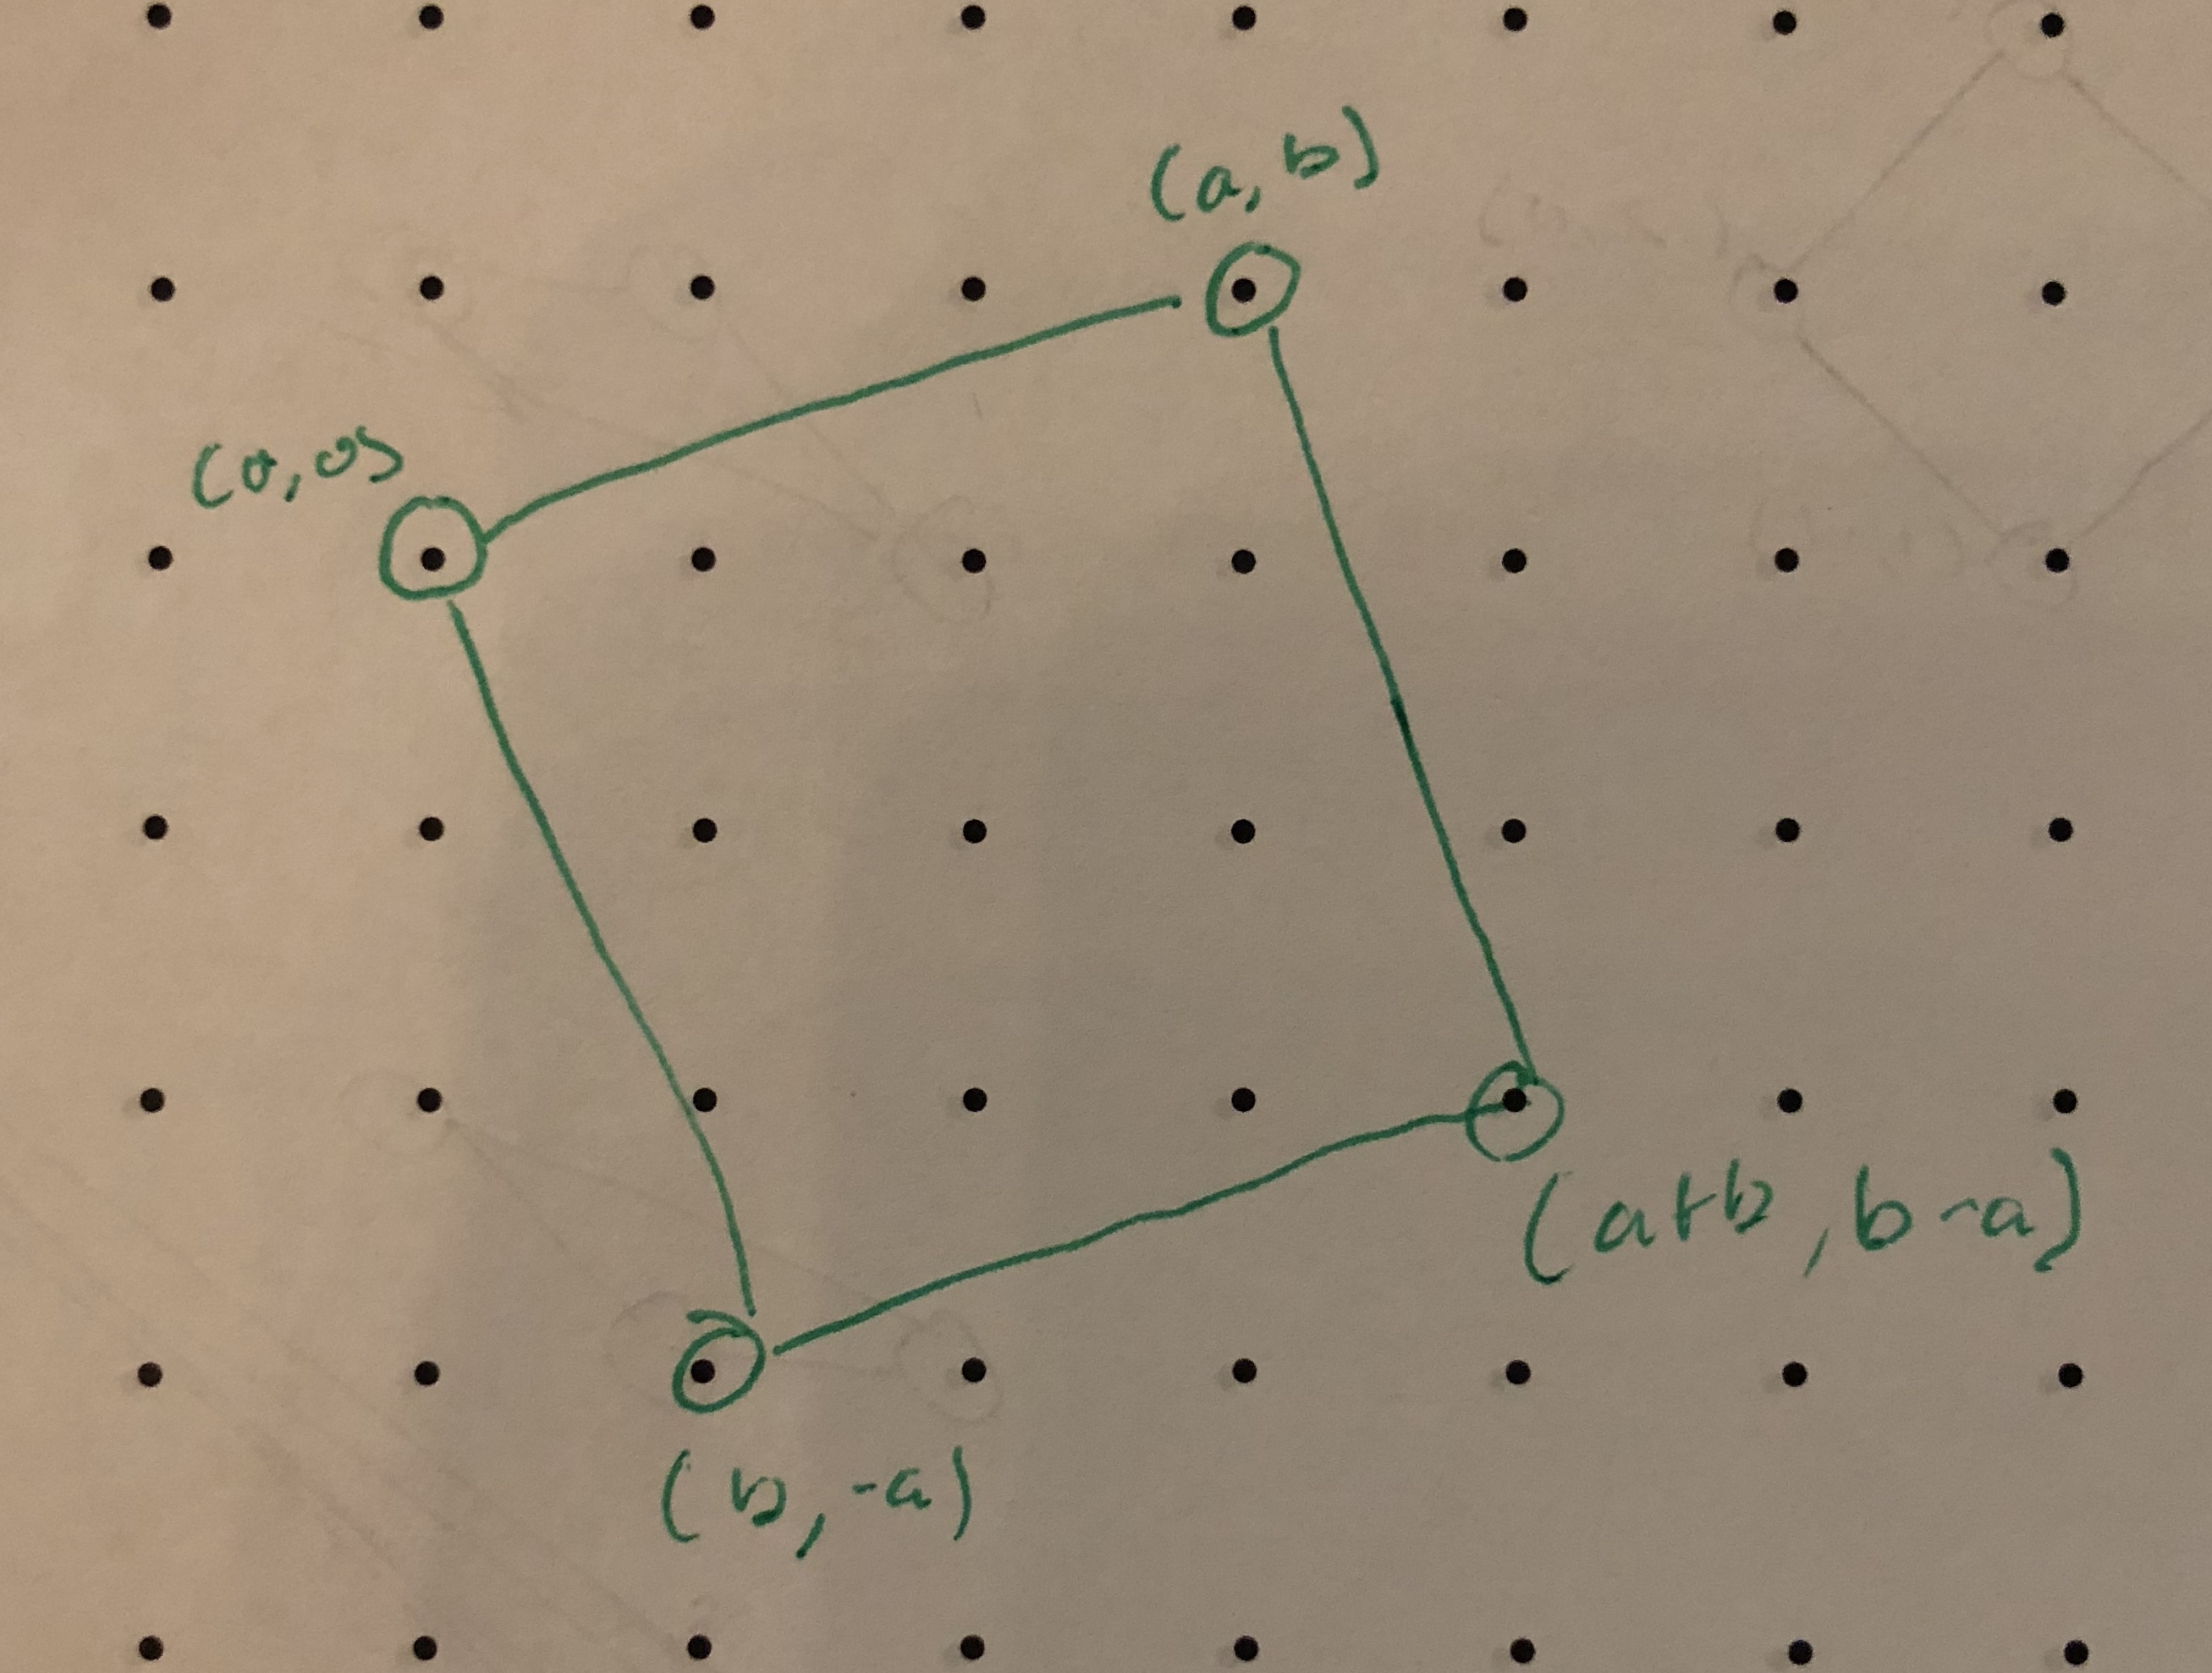 (a, b)
(0, 0)
(a+b, b-a)
(b, -a)